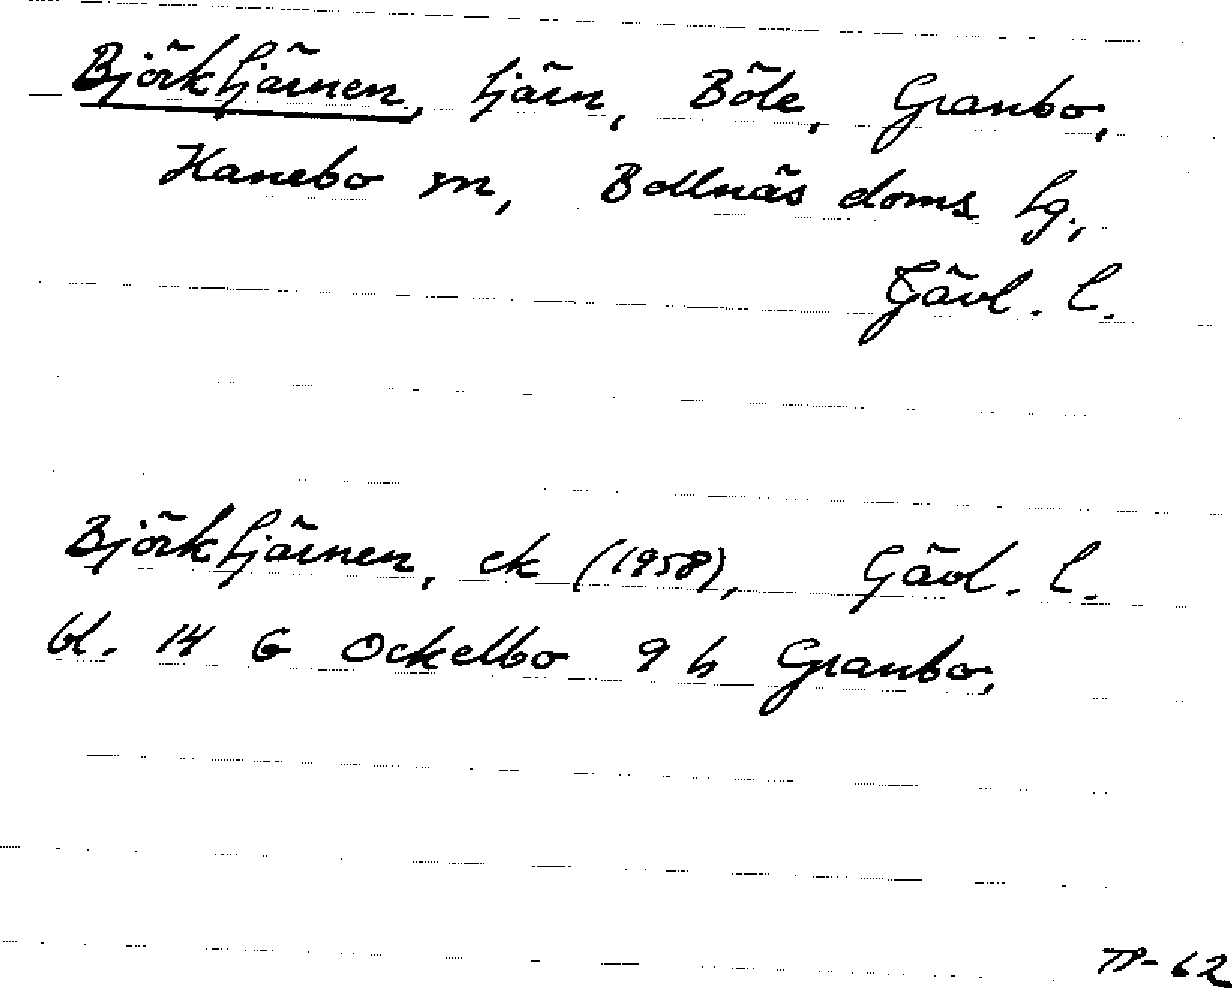 Björktjärnen, tjärn, Böle, Granbo,
Hanebo sn, Bollnäs doms. tg.,
Gävl. l.
Björktjärnen, ek (1958), Gävl. l.
bl. 14 G Ockelbo 9 h Granbo.
TP-62